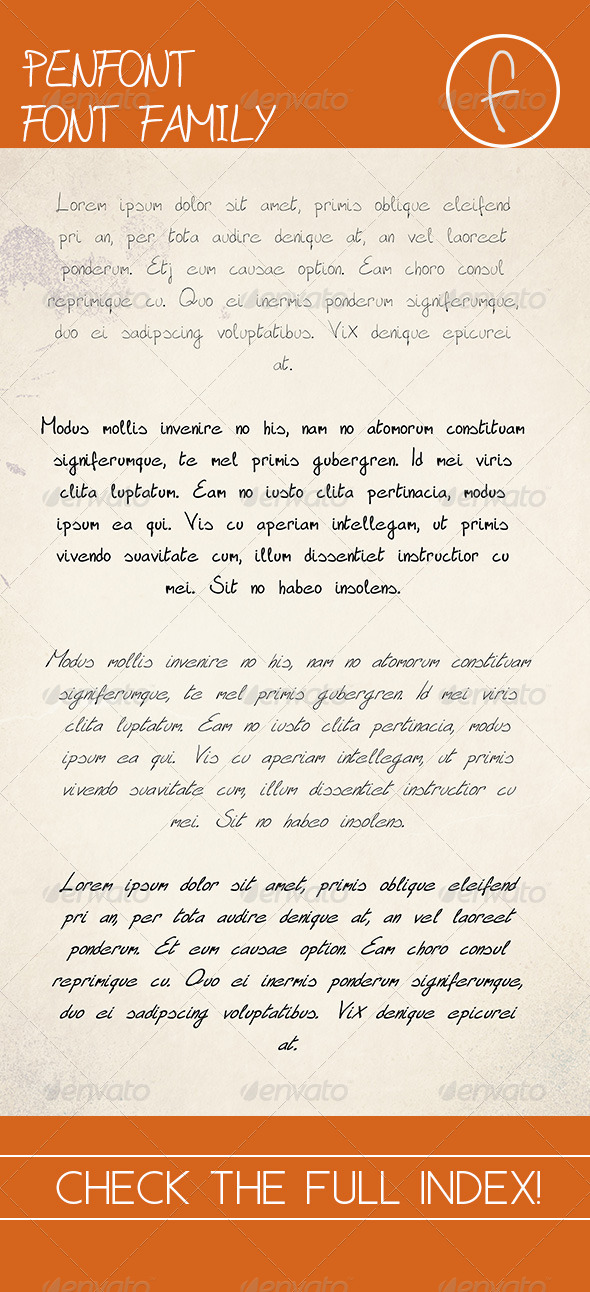 PENFONT
FONT FAMILY
f
Lorem ipsum dolor sit amet, primis oblique eleifend
pri an, per tota audire denique at, an vel laoreet
ponderum. Etj eum causae option. Eam choro consul
reprimique cu. Quo ei inermis ponderum signiferumque,
duo ei sadipscing voluptatibus. Vix denique epicurei
at.
Modus mollis invenire no his, nam no atomorum constituam
signiferumque, te mel primis gubergren. Id mei viris
clita luptatum. Eam no iusto clita pertinacia, modus
ipsum ea qui. Vis cu aperiam intellegam, ut primis
vivendo suavitate cum, illum dissentiet instructior cu
mei. Sit no habeo insolens.
Modus mollis invenire no his, nam no atomorum constituam
signiferumque, te mel primis gubergren. Id mei viris
clita luptatum. Eam no iusto clita pertinacia, modus
ipsum ea qui. Vis cu aperiam intellegam, ut primis
vivendo suavitate cum, illum dissentiet instructior cu
mei. Sit no habeo insolens.
Lorem ipsum dolor sit amet, primis oblique eleifend
pri an, per tota audire denique at, an vel laoreet
ponderum. Et eum causae option. Eam choro consul
reprimique cu. Quo ei inermis ponderum signiferumque,
duo ei sadipscing voluptatibus. Vix denique epicurei
at.
CHECK THE FULL INDEX!
envato